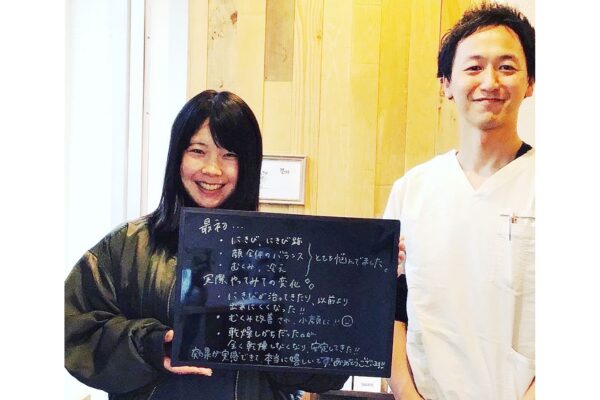 最初…
・にきび、にきび跡
・顔全体のバランス
・むくみ、冷え
とても悩んでました。
実際やってみての変化。
・にきびが治ってきたり、以前より
出来にくくなった!!
・むくみ改善され、小顔に!!
・乾燥しがちだったのが
全く乾燥しなくなり、安定してきた!!
効果が実感できて本当に嬉しいです。ありがとうございます!!